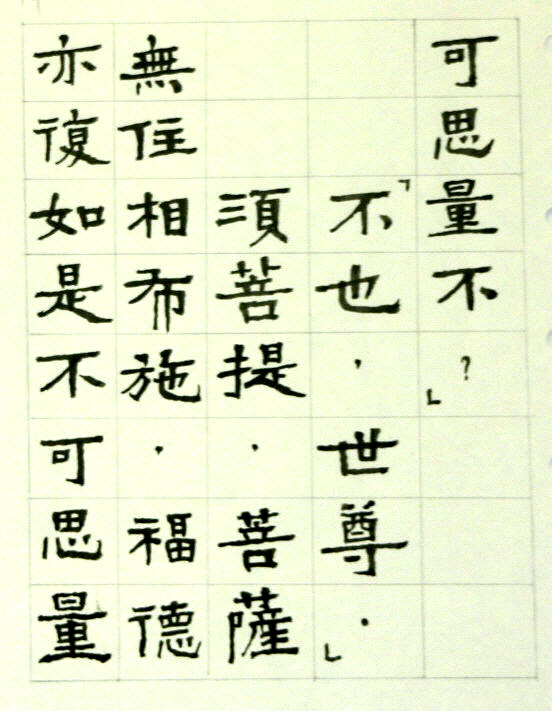 可思量不？」
「不也，世尊。」
須菩提，菩薩
無住相布施，福德
亦復如是不可思量